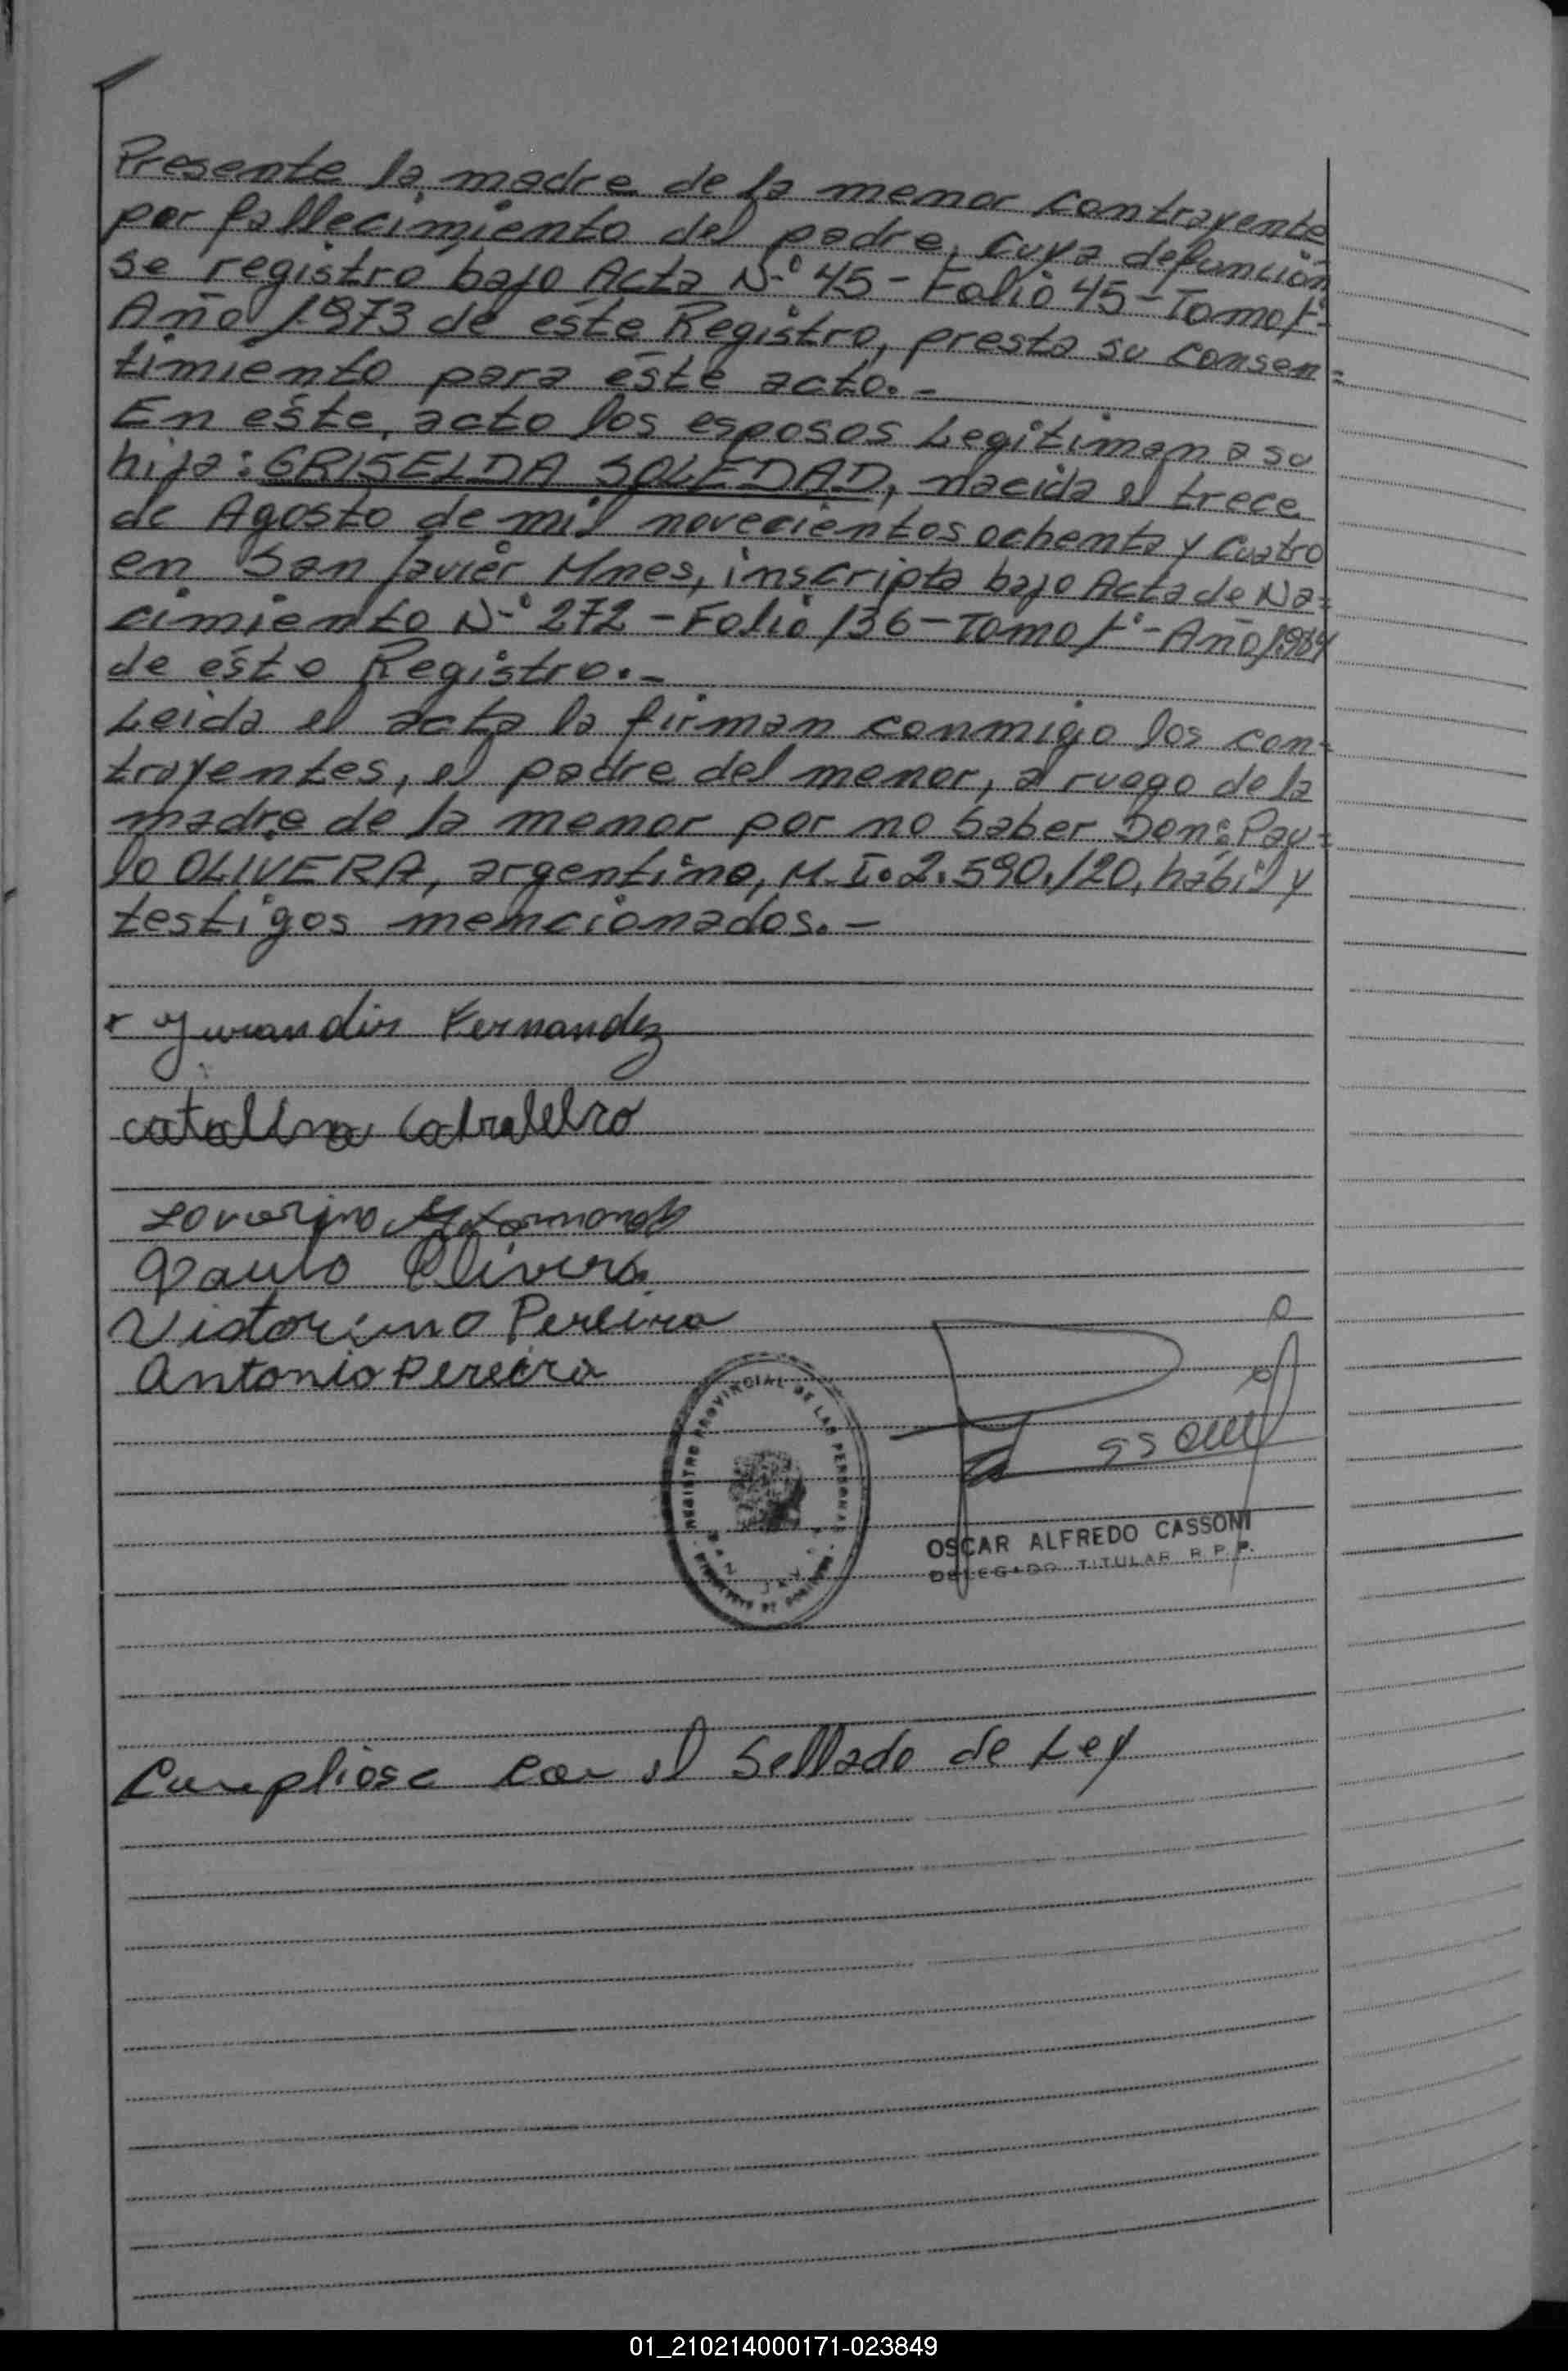 Presente la madre de la menor contrayente
por fallecimiento del padre, cuya defunción
se registro bajo Acta N-º 45 - Folio 45 - Tomo 1º-
Año 1.973 de éste Registro, presta su consen=
timiento para éste acto.-
En éste, acto los esposos Legitiman a su
hija: GRISELDA SOLEDAD, nacida el trece
de Agosto de mil novecientos ochenta y cuatro
en San Javier Mnes, inscripta bajo Acta de Na=
cimiento N-º 272 - Folio 136 - Tomo 1º - Año 1984
de éste Registro.-
Leida el acta la firman conmigo los con=
trayentes, el padre del menor, a ruego de la
madre de la menor por no saber Don: Pau=
lo OLIVERA, argentino, M.I. 2.590.120, hábil y
testigos mencionados.-
Jurandir Fernandez
catalina
Paulo Olivera
Victorino Pereira
Antonio Pereira
REGISTRO PROVINCIAL DE LAS PERSONAS
OSCAR ALFREDO CASSONI
DELEGADO TITULAR R.P.P.
Cumpliose con el Sellado de Ley
01_210214000171-023849